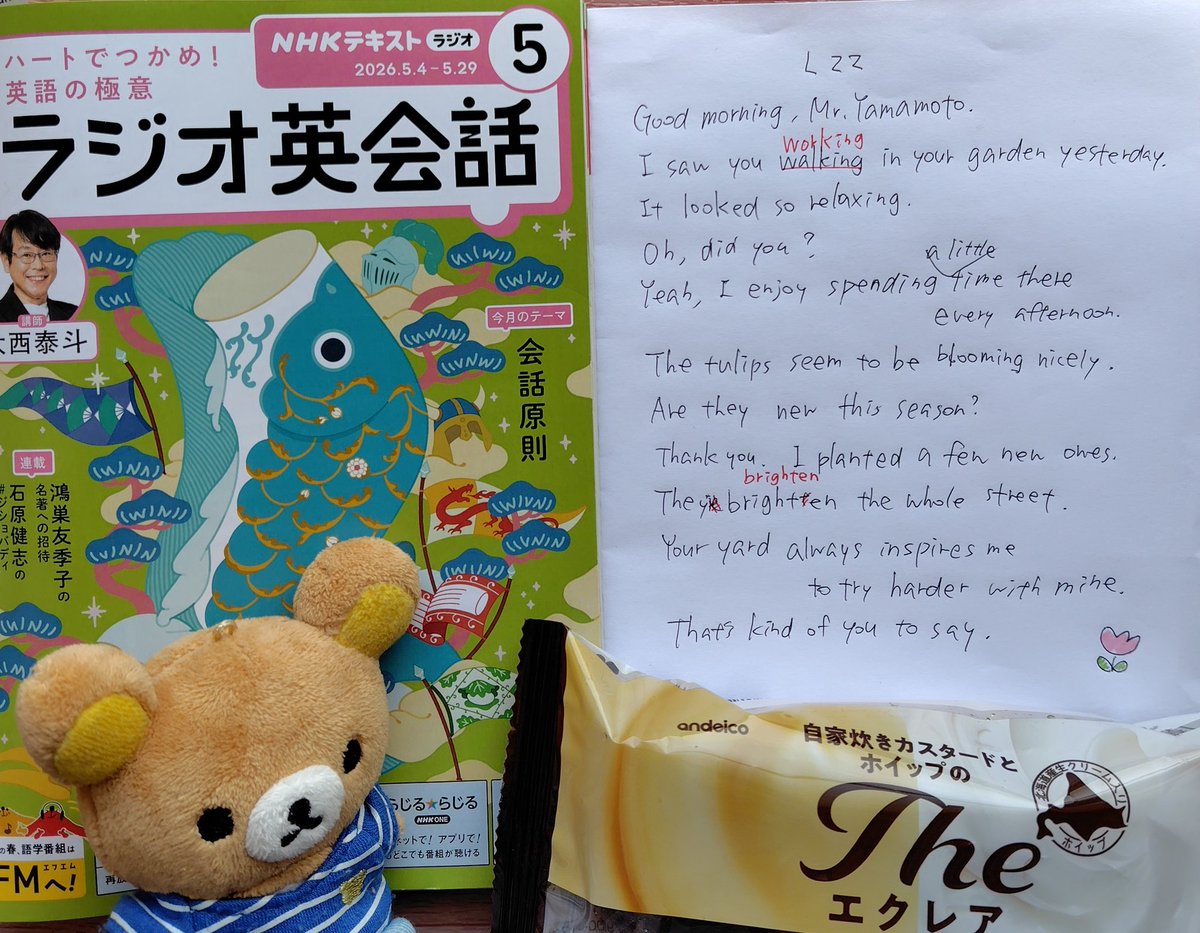 ハートでつかめ！
英語の極意
NHKテキスト ラジオ
2026.5.4－5.29
5
ラジオ英会話
講師
大西泰斗
今月のテーマ
会話原則
連載
鴻巣友季子の
名著への招待
石原健志の
#ジショバディ
らじる★らじる
NHK ONE
ネットで！アプリで！
どこでも番組が聴ける
の春、語学番組は
FMへ！
エフエム
L22
Good morning, Mr. Yamamoto.
working
I saw you walking in your garden yesterday.
It looked so relaxing.
Oh, did you?
a little
Yeah, I enjoy spending time there
every afternoon.
The tulips seem to be blooming nicely.
Are they new this season?
Thank you. I planted a few new ones.
brighten
They brighten the whole street.
Your yard always inspires me
to try harder with mine.
That's kind of you to say.
andeico
自家炊きカスタードと
ホイップの
The
エクレア
北海道産生クリーム入り
ホイップ